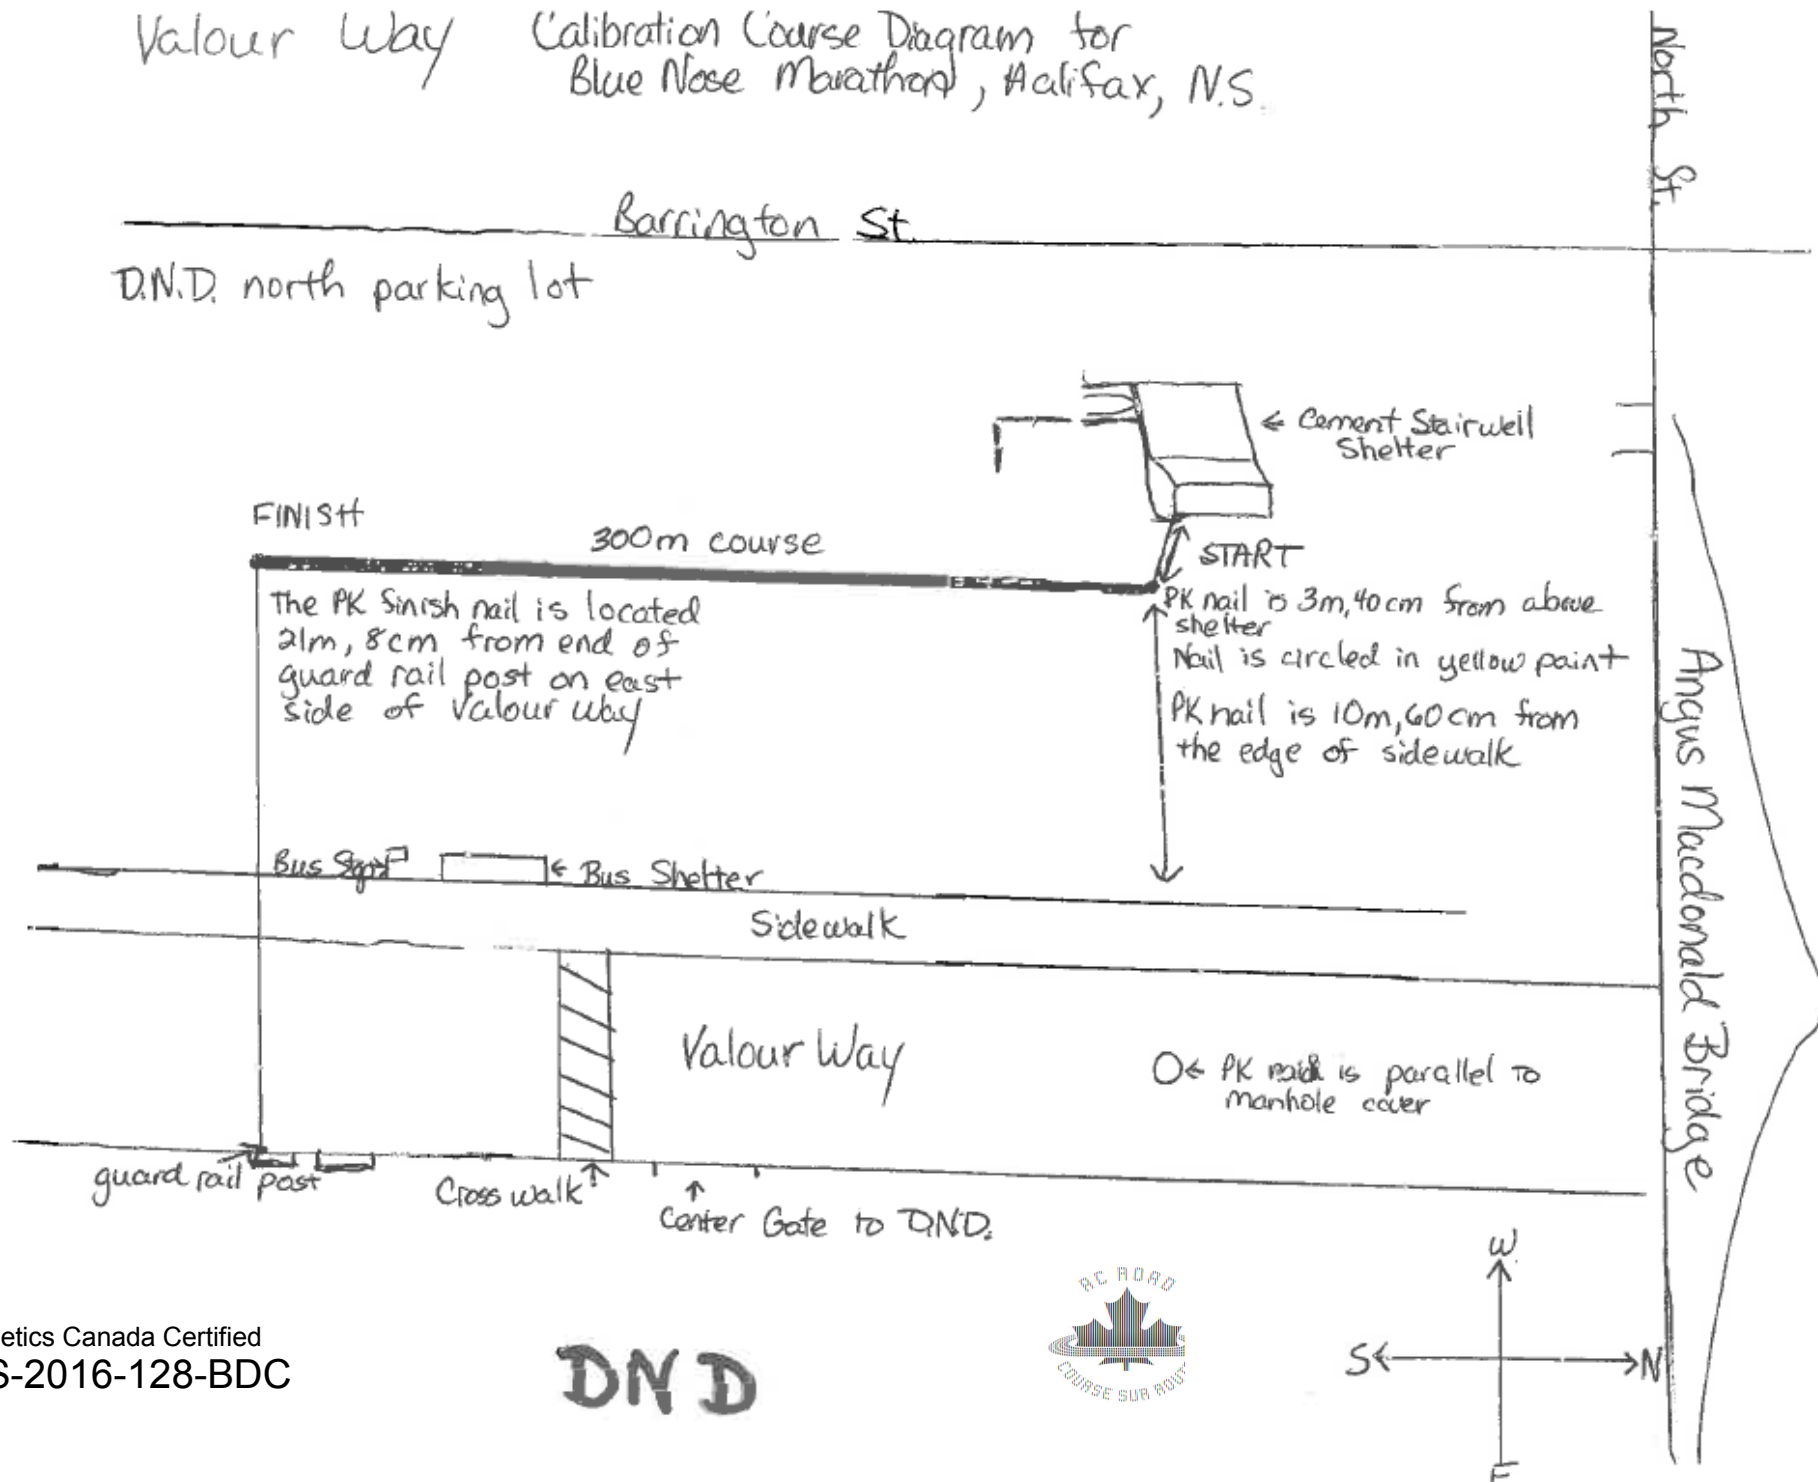 Valour Way Calibration Course Diagram for
Blue Nose Marathon, Halifax, N.S.
North St.
Barrington St.
D.N.D. north parking lot
← Cement Stairwell
Shelter
FINISH
300m course
START
The PK finish nail is located
21m, 8cm from end of
guard rail post on east
side of Valour Way
PK nail is 3m,40cm from above
shelter
Nail is circled in yellow paint
PK nail is 10m,60cm from
the edge of sidewalk
Angus Macdonald Bridge
Bus
← Bus Shelter
Sidewalk
Valour Way
← PK nail is parallel to
manhole cover
guard rail post
Cross walk
Center Gate to D.N.D.
W
S
N
E
AC ROAD
COURSE SUR ROUT
etics Canada Certified
S-2016-128-BDC
DND